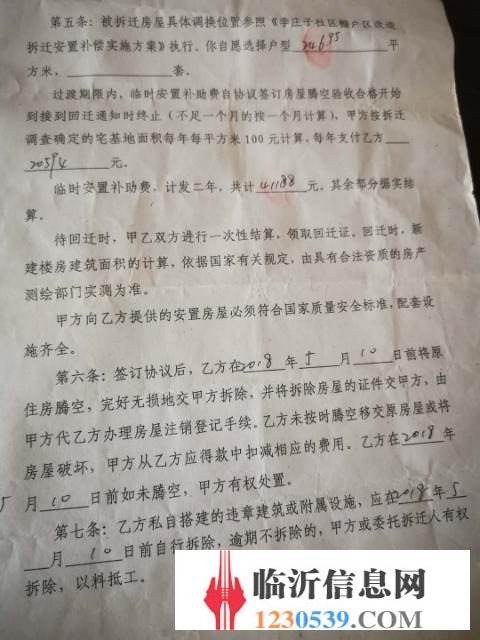 第五条：被拆迁房屋具体调换位置参照《李庄子社区棚户区改造
拆迁安置补偿实施方案》执行。你自愿选择户型246.95平
方米，套。
过渡期限内，临时安置补助费自协议签订房屋腾空验收合格开始
到接到回迁通知时终止（不足一个月的按一个月计算），甲方按拆迁
调查确定的宅基地面积每年每平方米100元计算，每年支付乙方
20594元。
临时安置补助费，计发二年，共计41188元，其余部分据实结
算。
待回迁时，甲乙双方进行一次性结算，领取回迁证。回迁时，新
建楼房建筑面积的计算，依据国家有关规定，由具有合法资质的房产
测绘部门实测为准。
甲方向乙方提供的安置房屋必须符合国家质量安全标准，配套设
施齐全。
第六条：签订协议后，乙方在2018年5月10日前将原
住房腾空，完好无损地交甲方拆除，并将拆除房屋的证件交甲方，由
甲方代乙方办理房屋注销登记手续。乙方未按时腾空移交原房屋或将
房屋破坏，甲方从乙方应得款中扣减相应的费用。乙方在2018年
5月10日前如未腾空，甲方有权处置。
第七条：乙方私自搭建的违章建筑或附属设施，应在2018年5
月10日前自行拆除，逾期不拆除的，甲方或委托拆迁人有权
拆除，以料抵工。
临沂信息网
1230539.com